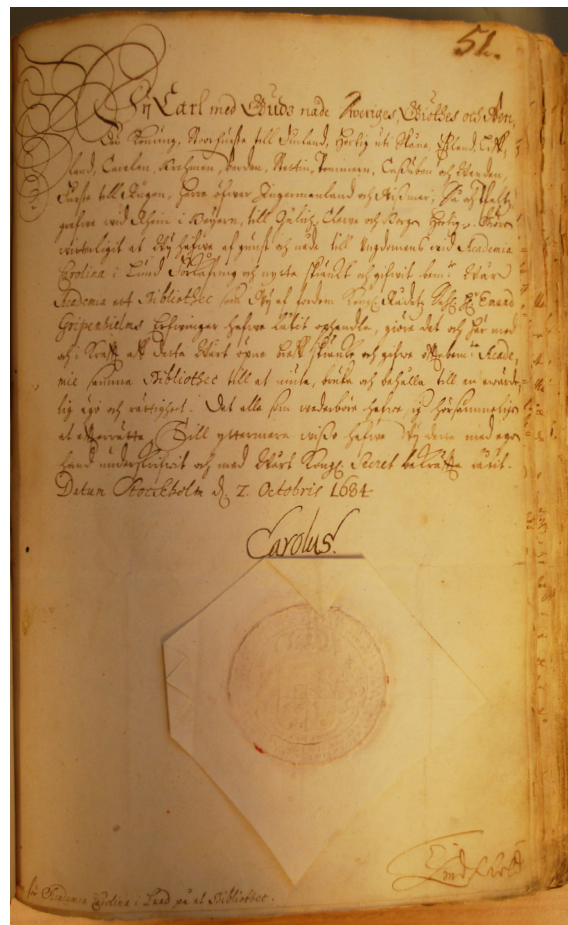 51.
Wij Carl med Gudz nåde Sweriges, Giöthes och Wen,
des Konung, Storfurste till Finland, Hertig uti Skåne, Estland, Lif,
land, Carelen, Brehmen, Verden, Stettin, Pommern, Cassuben och Wenden,
Furste till Rügen, Herre öfwer Ingermanland och Wißmar, Så och Pfaltz
grefwe wid Rhein i Beyern, till Gülich, Cleve och Bergen Hertig. Giöre
witterligit at Wij hafwe af gunst och nåde till Ungdomens wid Academia
Carolina i Lund förkåfring och nytta skiänckt och gifwit bem:te Wår
Academia ett Bibliothec som Wij af fordom Kongl. Rådetz Eduard
Gripenhielms Erfwingar hafwe låtit ophandla, giöre det och här med
och i Krafft af detta Wårt öpne bref skiäncke och gifwe Acade,
mie samma Bibliothec till at niuta, bruka och behålla till en ewärde,
lig ägo och rättighet. Det alla som wederbör hafwe sig hörsammeligen
at effterrätta. Till yttermera wisso hafwe Wij detta med egen
hand underskrifwit och med Wårt Kongl. Secret bekräffta låtit.
Datum Stockholm d. 2. Octobris 1684
Carolus.
för Academia Carolina i Lund på et Bibliothec.